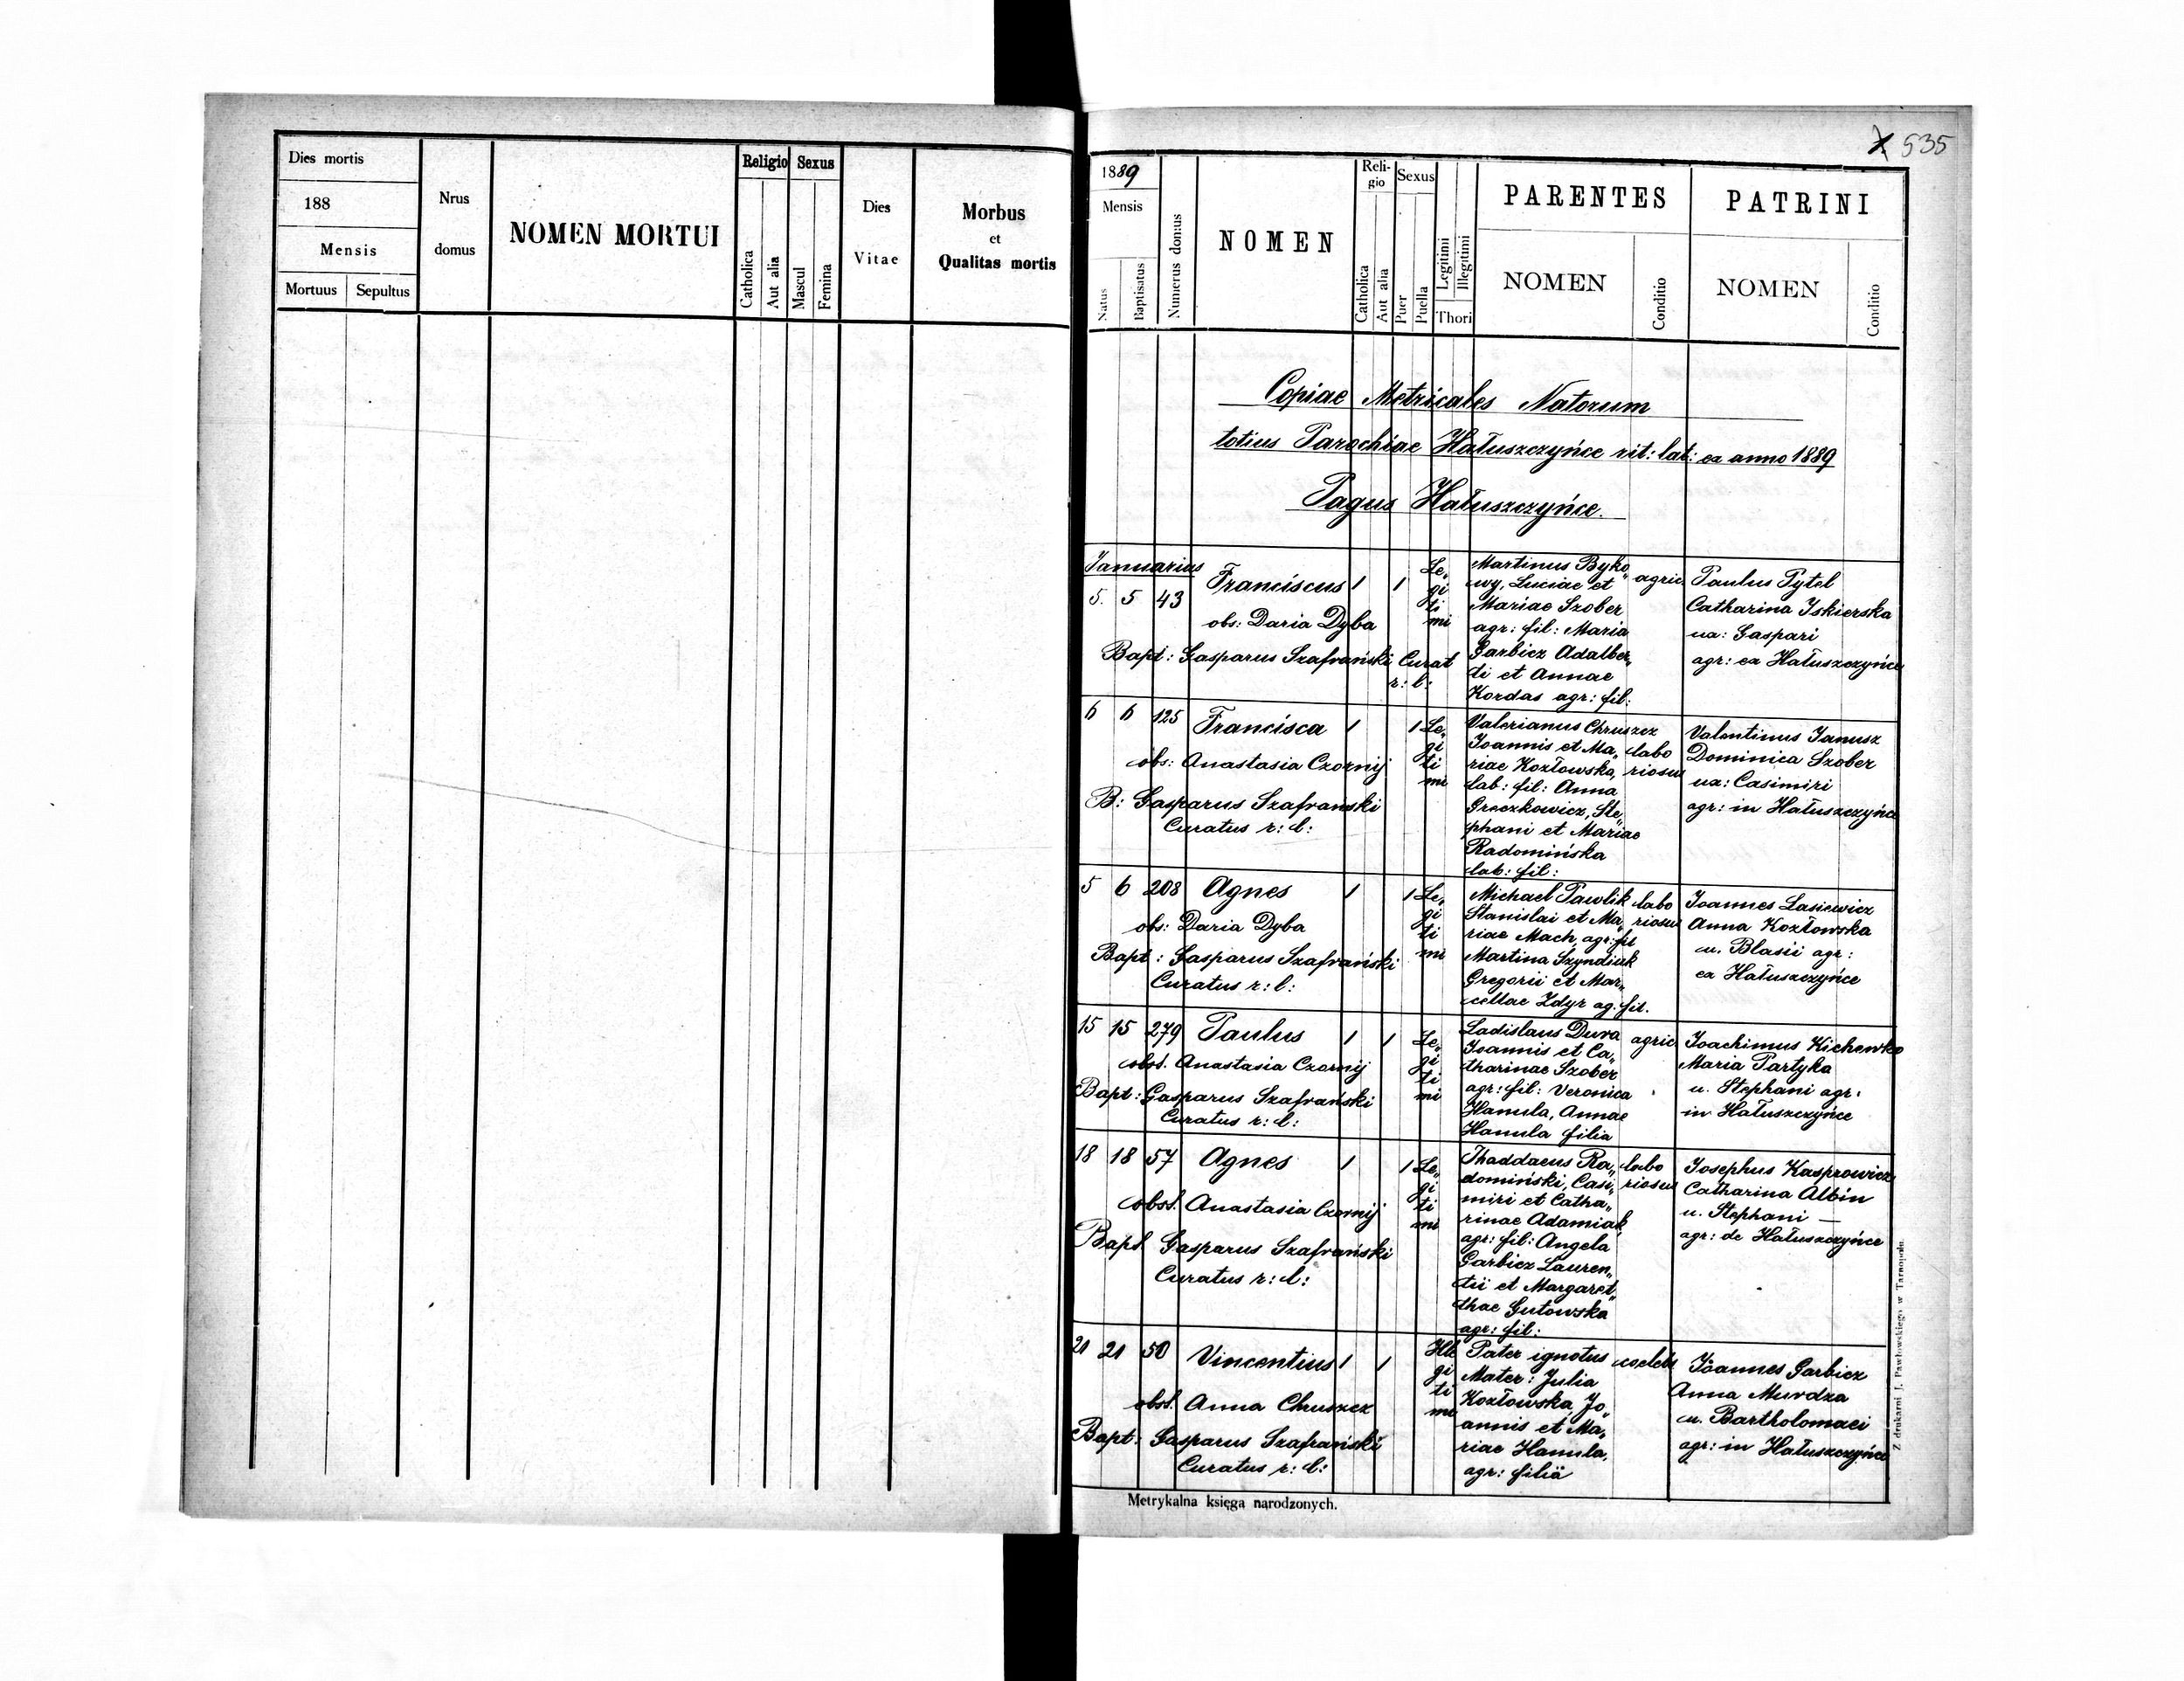 Dies mortis
188
Mensis
Mortuus Sepultus
Nrus
domus
NOMEN MORTUI
Religio
Catholica
Aut alia
Sexus
Mascul
Femina
Dies
Vitae
Morbus
et
Qualitas mortis
535
1889
Mensis
Natus
Baptisatus
Numerus domus
NOMEN
Reli-
gio
Catholica
Aut alia
Sexus
Puer
Puella
Legitimi
Illegitimi
Thori
PARENTES
NOMEN
Conditio
PATRINI
NOMEN
Conditio
Copiae Metricales Natorum
totius Parochiae Hałuszczyńce rit: lat: ex anno 1889
Pagus Hałuszczyńce.
Januarius
5. 5 43 Franciscus 1 1
obs: Daria Dyba
Bapt: Gasparus Szafrański Curat
r: l:
Le„
gi
ti
mi
Martinus Byko„
wy, Luciae et
Mariae Szober
agr: fil: Maria
Garbicz Adalber„
ti et Annae
Kordas agr: fil:
agric.
Paulus Pytel
Catharina Iskierska
ux: Gaspari
agr: ex Hałuszczyńce
6 6 125 Francisca 1 1
obs: Anastasia Czornij
B: Gasparus Szafrański
Curatus r: l:
Le„
gi
ti
mi
Valerianus Chruszcz
Joannis et Ma„
riae Kozłowska,
lab: fil: Anna
Greczkowicz, Ste„
phani et Mariae
Radomińska
lab: fil:
labo
riosus
Valentinus Janusz
Dominica Szober
ux: Casimiri
agr: in Hałuszczyńce
5 6 208 Agnes 1 1
obs: Daria Dyba
Bapt: Gasparus Szafrański
Curatus r: l:
Le„
gi
ti
mi
Michael Pawlik
Stanislai et Ma„
riae Mach, agr: fil
Martina Szyndiuk
Gregorii et Mar„
cellae Zdyr ag: fil.
labo
riosus
Joannes Lasiewicz
Anna Kozłowska
u. Blasii agr:
ex Hałuszczyńce
15 15 279 Paulus 1 1
obst. Anastasia Czornij
Bapt: Gasparus Szafrański
Curatus r: l:
Le„
gi
ti
mi
Ladislaus Dura
Joannis et Ca„
tharinae Szober
agr: fil: Veronica
Hamula, Annae
Hamula filia
agric
Joachimus Kichewko
Maria Partyka
u. Stephani agr:
in Hałuszczyńce
18 18 57 Agnes 1 1
obst. Anastasia Czornij
Bapt Gasparus Szafrański
Curatus r: l:
Le„
gi
ti
mi
Thaddaeus Ra„
domiński, Casi„
miri et Catha„
rinae Adamiak
agr: fil: Angela
Garbicz Lauren„
tii et Margaret„
thae Gutowska
agr: fil:
labo
riosus
Josephus Kasprowicz
Catharina Albin
u. Stephani —
agr: de Hałuszczyńce
21 21 50 Vincentius 1 1
obst. Anna Chruszcz
Bapt: Gasparus Szafrański
Curatus r: l:
Ille
gi
ti
mi
Pater ignotus
Mater: Julia
Kozłowska, Jo„
annis et Ma„
riae Hamula,
agr: filia
coelebs
Joannes Garbicz
Anna Murdza
u. Bartholomaei
agr: in Hałuszczyńce
Metrykalna księga narodzonych.
Z drukarni J. Pawłowskiego w Tarnopolu.